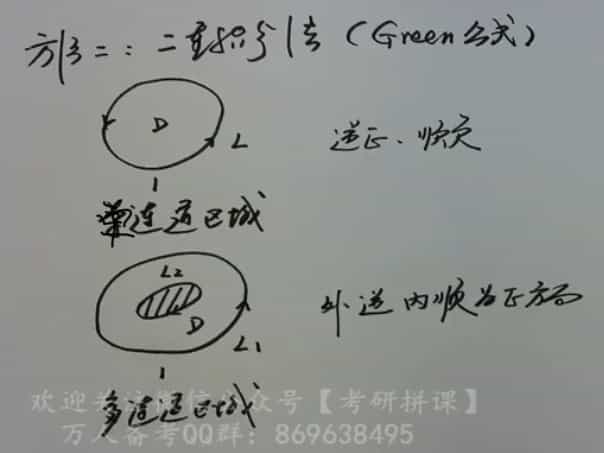 方法二：二重积分法（Green公式）
D
L
逆正、顺负
单连通区域
L2
D
L1
外逆内顺为正方向
多连通区域
欢迎关注微信公众号【考研拼课】
万人备考QQ群：869638495